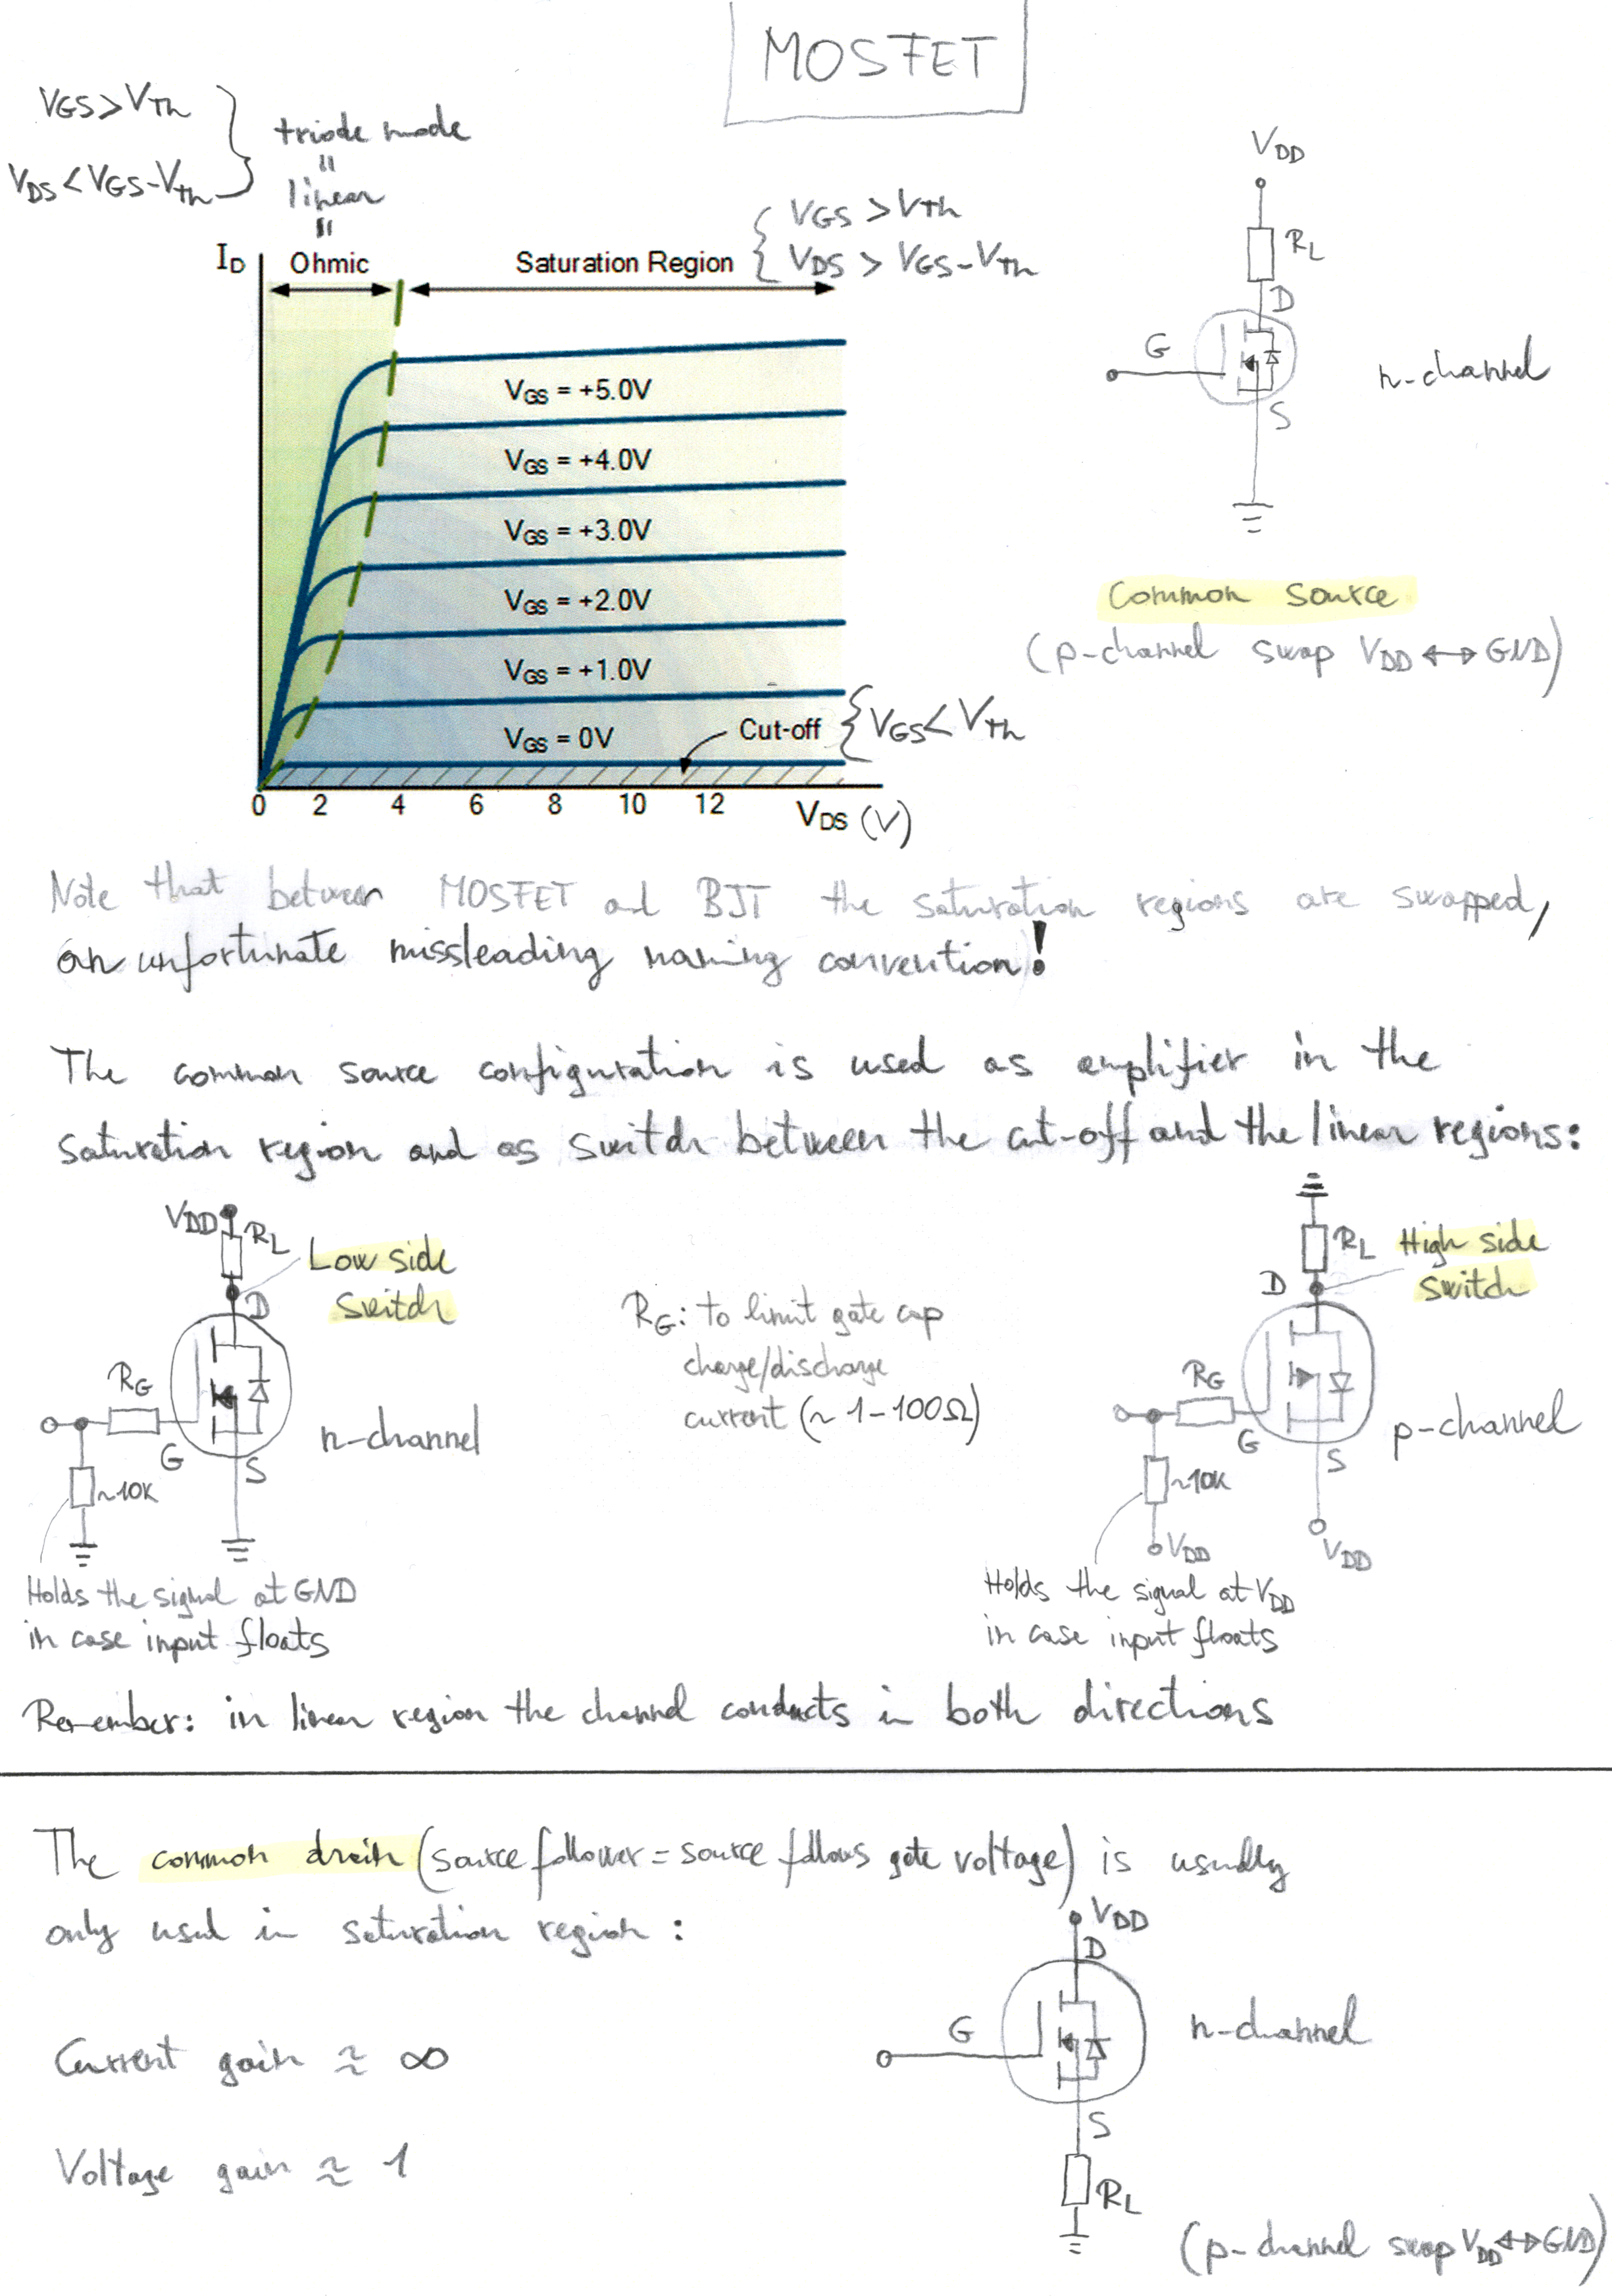 MOSFET
VGS > VTh
VDS < VGS-VTh
triode mode
=
linear
=
VGS > VTh
VDS > VGS-VTh
ID
Ohmic
Saturation Region
VGS = +5.0V
VGS = +4.0V
VGS = +3.0V
VGS = +2.0V
VGS = +1.0V
VGS = 0V
Cut-off
VGS < VTh
0 2 4 6 8 10 12
VDS (V)
VDD
RL
D
G
S
n-channel
Common Source
(p-channel swap VDD ↔ GND)
Note that between MOSFET and BJT the saturation regions are swapped,
an unfortunate missleading naming convention!
The common source configuration is used as amplifier in the
saturation region and as switch between the cut-off and the linear regions:
VDD
RL
Low side
switch
D
RG
G
S
n-channel
~10K
Holds the signal at GND
in case input floats
RG: to limit gate cap
charge/discharge
current (~1-100Ω)
RL
High side
switch
D
RG
G
S
p-channel
~10K
VDD
VDD
Holds the signal at VDD
in case input floats
Remember: in linear region the channel conducts in both directions
The common drain (source follower = source follows gate voltage) is usually
only used in saturation region:
Current gain ≈ ∞
Voltage gain ≈ 1
VDD
D
G
n-channel
S
RL
(p-channel swap VDD ↔ GND)